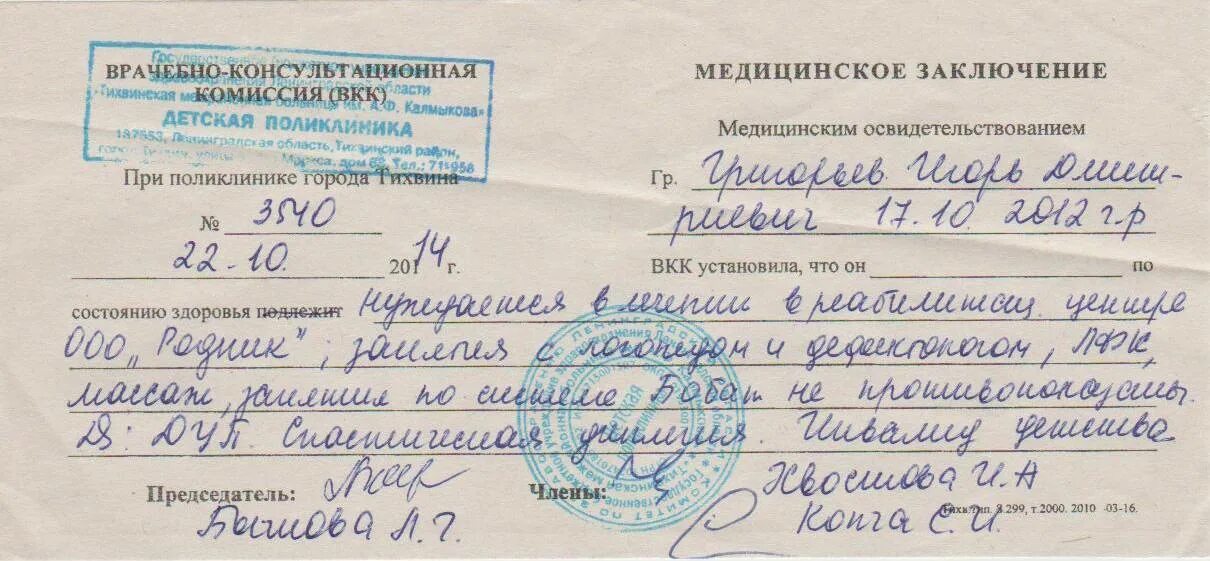 Государственное бюджетное учреждение
здравоохранения Ленинградской области
"Тихвинская межрайонная больница им. А.Ф. Калмыкова"
ДЕТСКАЯ ПОЛИКЛИНИКА
187553, Ленинградская область, Тихвинский район,
город Тихвин, улица Маркса, дом 62, Тел.: 71-958
ВРАЧЕБНО-КОНСУЛЬТАЦИОННАЯ
КОМИССИЯ (ВКК)
При поликлинике города Тихвина
№ 3540
22-10. 2014 г.
МЕДИЦИНСКОЕ ЗАКЛЮЧЕНИЕ
Медицинским освидетельствованием
Гр. Григорьев Игорь Дмит-
риевич 17.10. 2012 г.р
ВКК установила, что он по
состоянию здоровья подлежит нуждается в лечении в реабилитац. центре
ООО „Родник"; занятия с логопедом и дефектологом, ЛФК,
массаж, занятия по системе Бобат не противопоказаны.
Ds: ДЦП. Спастическая диплегия. Инвалид детства
Председатель:
Члены: Хвостова И.А
Л.Г.
Копча С.И.
Тихв. тип. З.299, т.2000. 2010 -03-16.